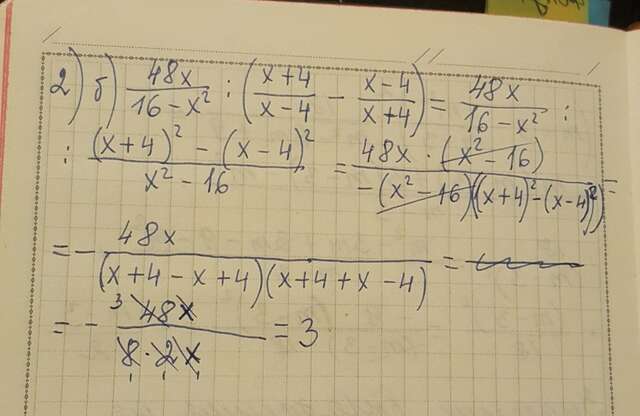 2) б) 48x/(16 - x²) : ((x+4)/(x-4) - (x-4)/(x+4)) = 48x/(16 - x²) :
: ((x+4)² - (x-4)²)/(x² - 16) = (48x · (x² - 16))/(-(x² - 16)((x+4)² - (x-4)²)) =
= - 48x/((x+4-x+4)(x+4+x-4)) =
= - 48x/(8·2x) = 3